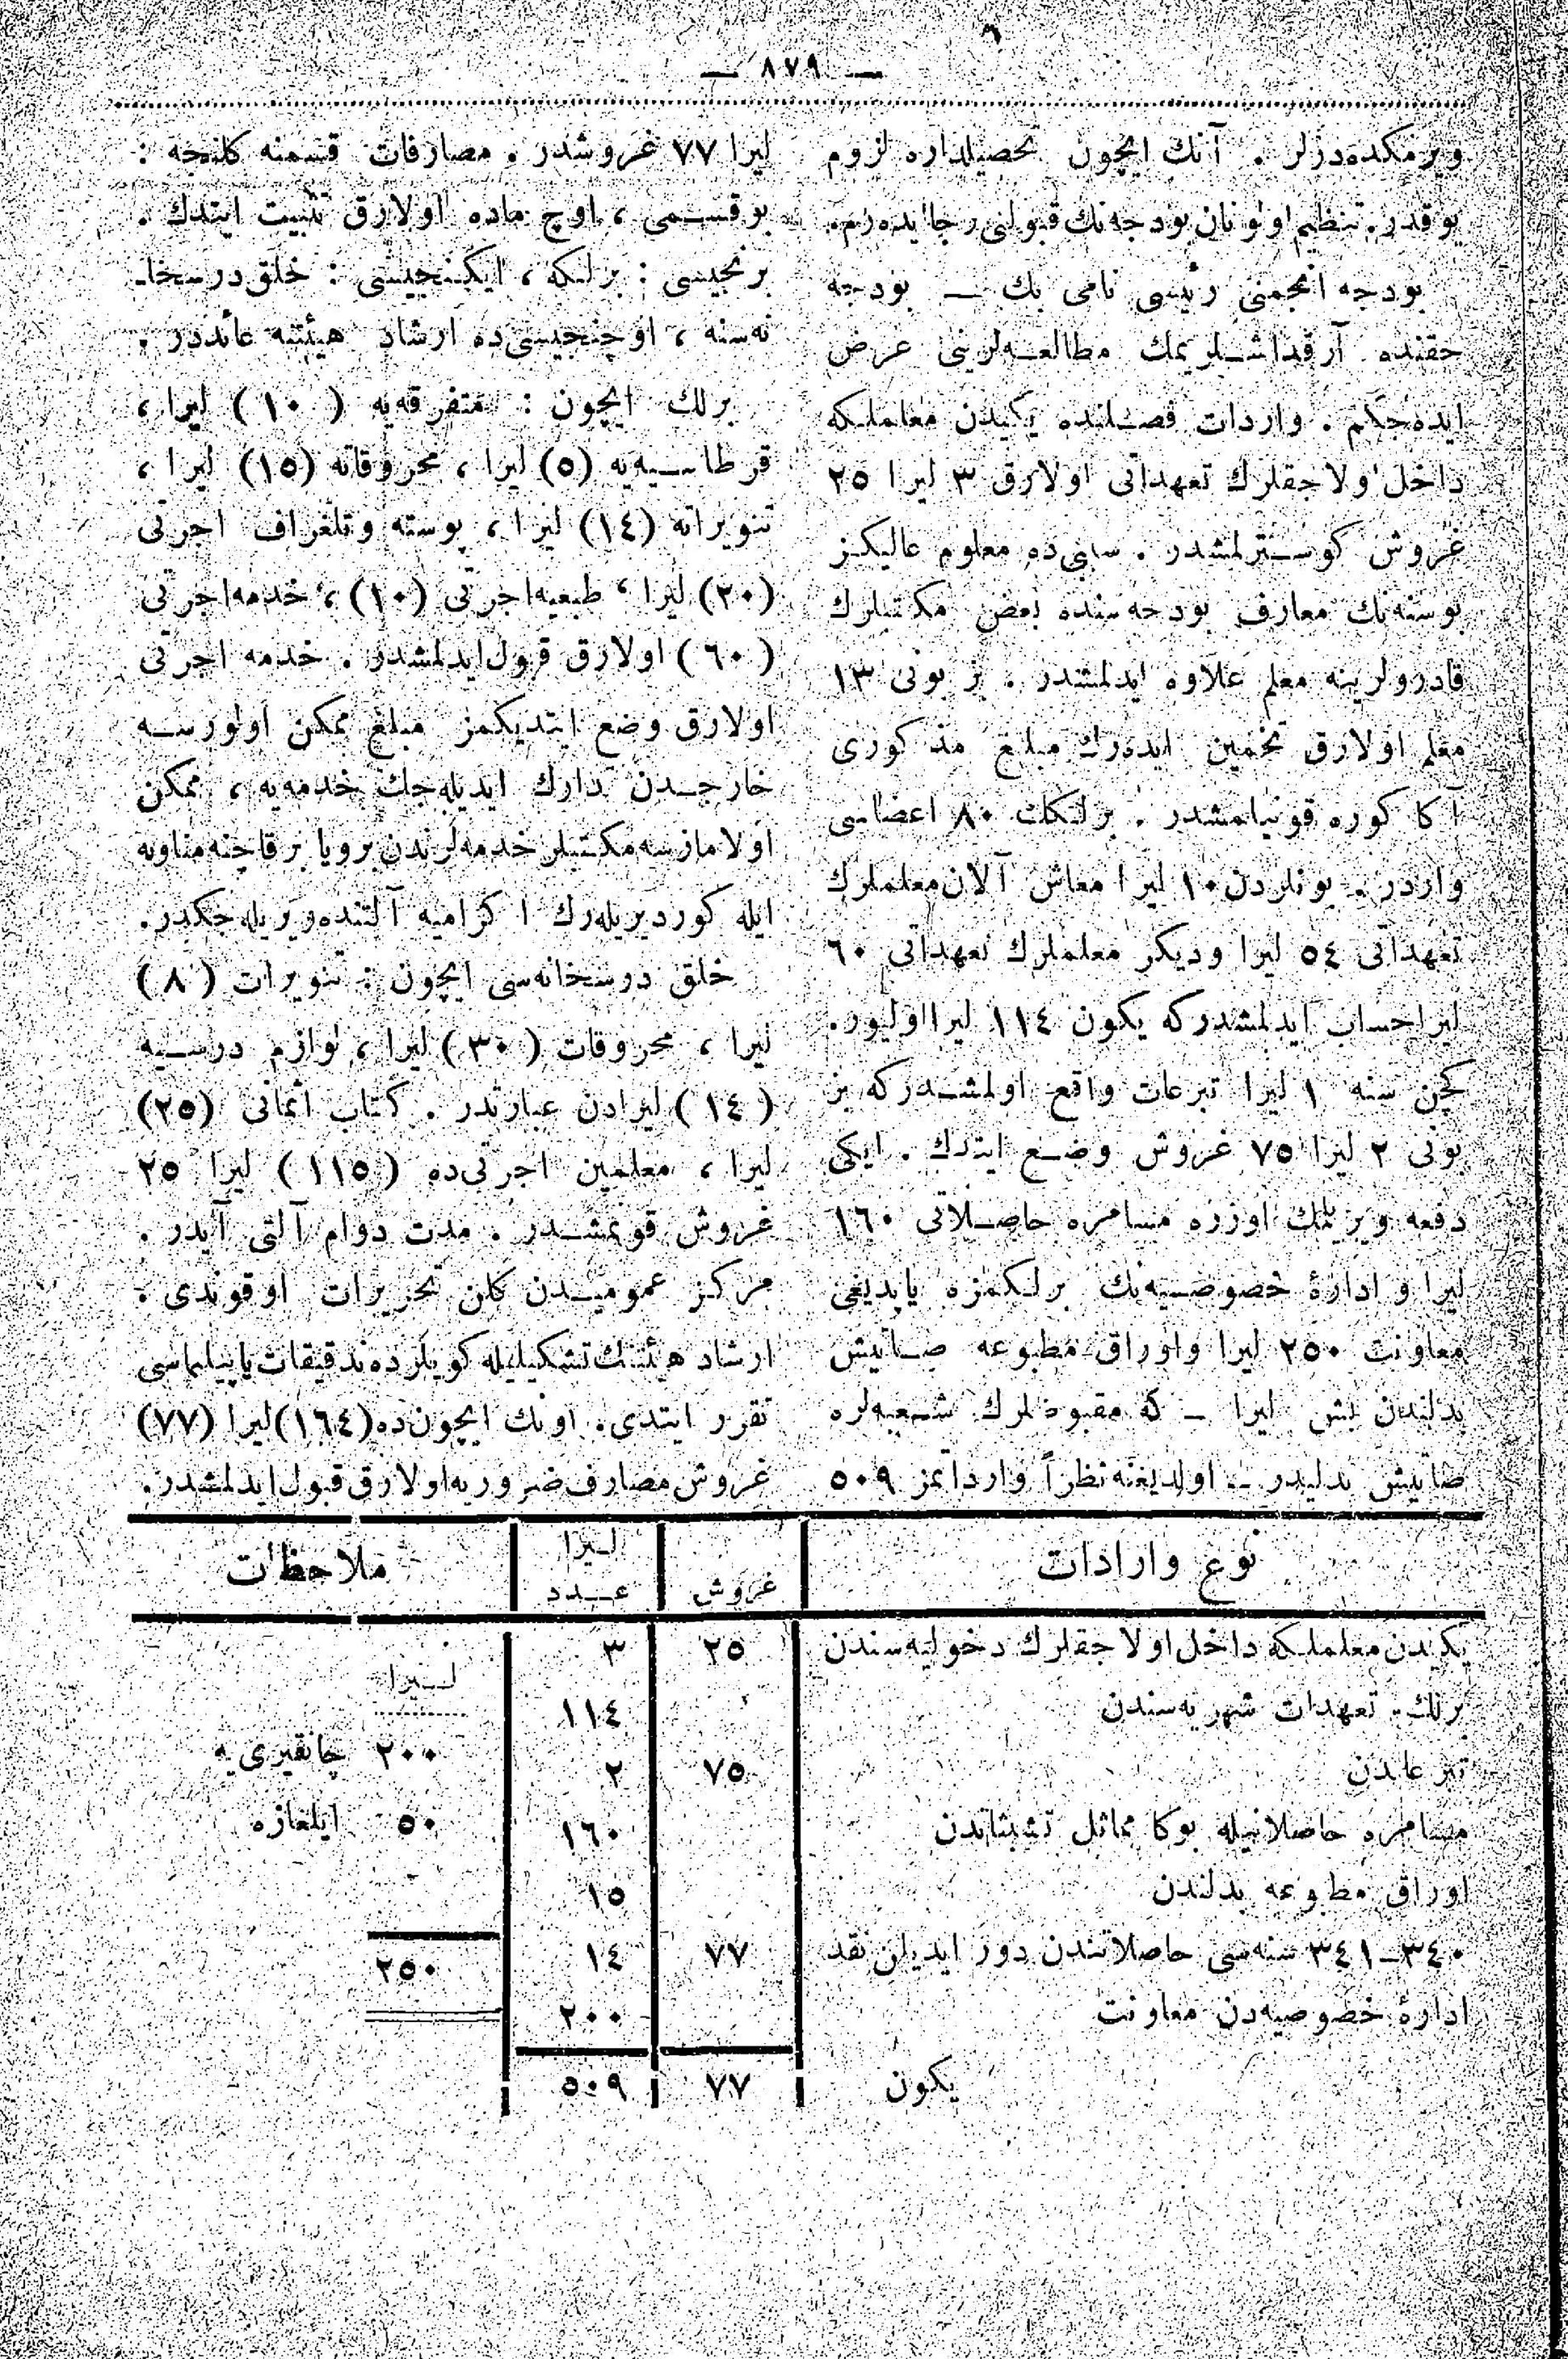 — ٨٧٩ —
ويرمكده‌درلر . آنك ايچون تحصيلداره لزوم
يوقدر. تنظيم اولونان بودجه‌نك قبولنى رجا ايده‌رم.
بودجه انجمنى رئيسى نامى بك — بودجه
حقنده آرقداشلريمك مطالعه‌لرينى عرض
ايده‌جكم . واردات فصلنده يكيدن معلملكه
داخل اولاجقلرك تعهداتى اولارق ٣ ليرا ٢٥
غروش كوسترلمشدر . سببى‌ده معلوم عاليكز
بوسنه‌نك معارف بودجه‌سنده بعض مكتبلرك
قادرولرينه معلم علاوه ايدلمشدر . بز بونى ١٣
معلم اولارق تخمين ايده‌رك مبلغ مذكورى
آكا كوره قونيلمشدر . برلكك ٨٠ اعضاسى
واردر . بونلردن ١٠ ليرا معاش آلان معلملرك
تعهداتى ٥٤ ليرا وديكر معلملرك تعهداتى ٦٠
ليرا حساب ايدلمشدركه يكون ١١٤ ليرا اوليور.
كچن سنه ١ ليرا تبرعات واقع اولمشدركه بز
بونى ٢ ليرا ٧٥ غروش وضع ايتدك . ايكى
دفعه ويرلمك اوزره مسامره حاصلاتى ١٦٠
ليرا و ادارۀ خصوصيه‌نك برلكمزه ياپديغى
معاونت ٢٥٠ ليرا واوراق مطبوعه صاتيش
بدلندن بش ليرا — كه مقبوضلرك شعبه‌لره
صاتيش بدليدر — اولديغنه نظراً وارداتمز ٥٠٩
ليرا ٧٧ غروشدر . مصارفات قسمنه كلنجه :
بوقسمى ، اوچ ماده اولارق تثبيت ايتدك .
برنجيسى : برلكه ، ايكنجيسى : خلق درسخا-
نه‌سنه ، اوچنجيسى‌ده ارشاد هيئتنه عائددر .
برلك ايچون : متفرقه‌يه (١٠) ليرا ،
قرطاسيه‌يه (٥) ليرا ، محروقاته (١٥) ليرا ،
تنويراته (١٤) ليرا ، پوسته وتلغراف اجرتى
(٢٠) ليرا ، طبعيه اجرتى (١٠) ، خدمه اجرتى
(٦٠) اولارق قبول ايدلمشدر . خدمه اجرتى
اولارق وضع ايتديكمز مبلغ ممكن اولورسه
خارجدن تدارك ايديله‌جك خدمه‌يه ، ممكن
اولامازسه مكتبلر خدمه‌لرندن برويا برقاچنه مناوبه
ايله كورديريله‌رك اكراميه آلتنده ويريله‌جكدر.
خلق درسخانه‌سى ايچون : تنويرات (٨)
ليرا ، محروقات (٣٠) ليرا ، لوازم درسيه
(١٤) ليرادن عبارتدر . كتاب اثمانى (٢٥)
ليرا ، معلمين اجرتى‌ده (١١٥) ليرا ٢٥
غروش قونمشدر . مدت دوام آلتى آيدر .
مركز عموميدن كلن تحريرات اوقوندى .
ارشاد هيئتنك تشكيليله كويلرده تدقيقات ياپيلماسى
تقرر ايتدى. اونك ايچون‌ده (١٦٤) ليرا (٧٧)
غروش مصارف ضروريه اولارق قبول ايدلمشدر.
نوع وارادات | غروش | ليرا عدد | ملاحظات
يكيدن معلملكه داخل اولاجقلرك دخوليه‌سندن ٢٥ ٣
ليرا
برلك تعهدات شهريه‌سندن ١١٤
٢٠٠ چانقيرى‌يه
تبرعاتدن ٧٥ ٢
مسامره حاصلاتيله بوكا مماثل تشبثاتدن ١٦٠
٥٠ ايلغازه
اوراق مطبوعه بدلندن ١٥
٣٤٠-٣٤١ سنه‌سى حاصلاتندن دور ايديلن نقد ٧٧ ١٤
٢٥٠
ادارۀ خصوصيه‌دن معاونت ٢٠٠
يكون ٧٧ ٥٠٩